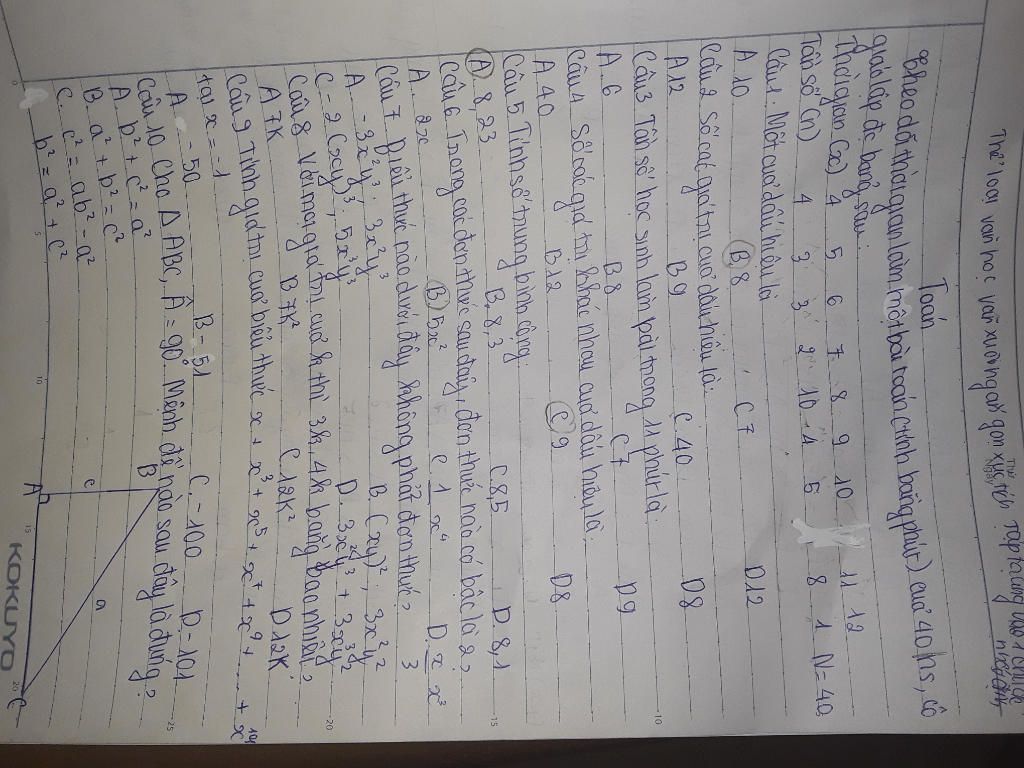 Thể loại văn học
Toán
Theo dõi thời gian làm một bài toán (tính bằng phút) của 40 hs, cô
giáo lập đc bảng sau:
Thời gian (x) 4 5 6 7 8 9 10 11 12
Tần số (n) 4 3 3 2 10 4 5 8 1 N = 40
Câu 1. Một của dấu hiệu là
A. 10 B. 8 C 7 D12
Câu 2 Số các giá trị của dấu hiệu là
A 12 B 9 C 40 D8
Câu 3 Tần số học sinh làm bài trong 11 phút là
A. 6 B 8 C 7 D 9
Câu 4 Số các giá trị khác nhau của dấu hiệu là
A 40 B 12 C 9 D8
Câu 5 Tính số trung bình cộng
A 8,23 B, 8,3 C. 8,5 D, 8,1
Câu 6 Trong các đơn thức sau đây, đơn thức nào có bậc là 2?
A. 2x B) 5x² C 1 x⁴ D. x x³ 3
Câu 7 Biểu thức nào dưới đây không phải đơn thức?
A -3x²y³. 3x²y³ B (xy)². 3x²y²
C - 2(xy)³. 5x³y³ D. 3x²y³ + 3x³y²
Câu 8 Với mọi giá trị của k thì 3k.4k bằng bao nhiêu?
A 7K B 7k² C 12K² D 12K
Câu 9 Tính giá trị của biểu thức x + x³ + x⁵ + x⁷ + x⁹ + ..... + x¹⁰¹
tại x = -1
A. - 50 B - 51 C. -100 D -101
Câu 10 Cho Δ ABC, Â = 90°. Mệnh đề nào sau đây là đúng?
A. b² + c² = a²
B. a² + b² = c²
C. c² = ab² - a²
b² = a² + c²
B
c
a
A
C
KOKUYO
0
5
10
15
20
10
15
20
25